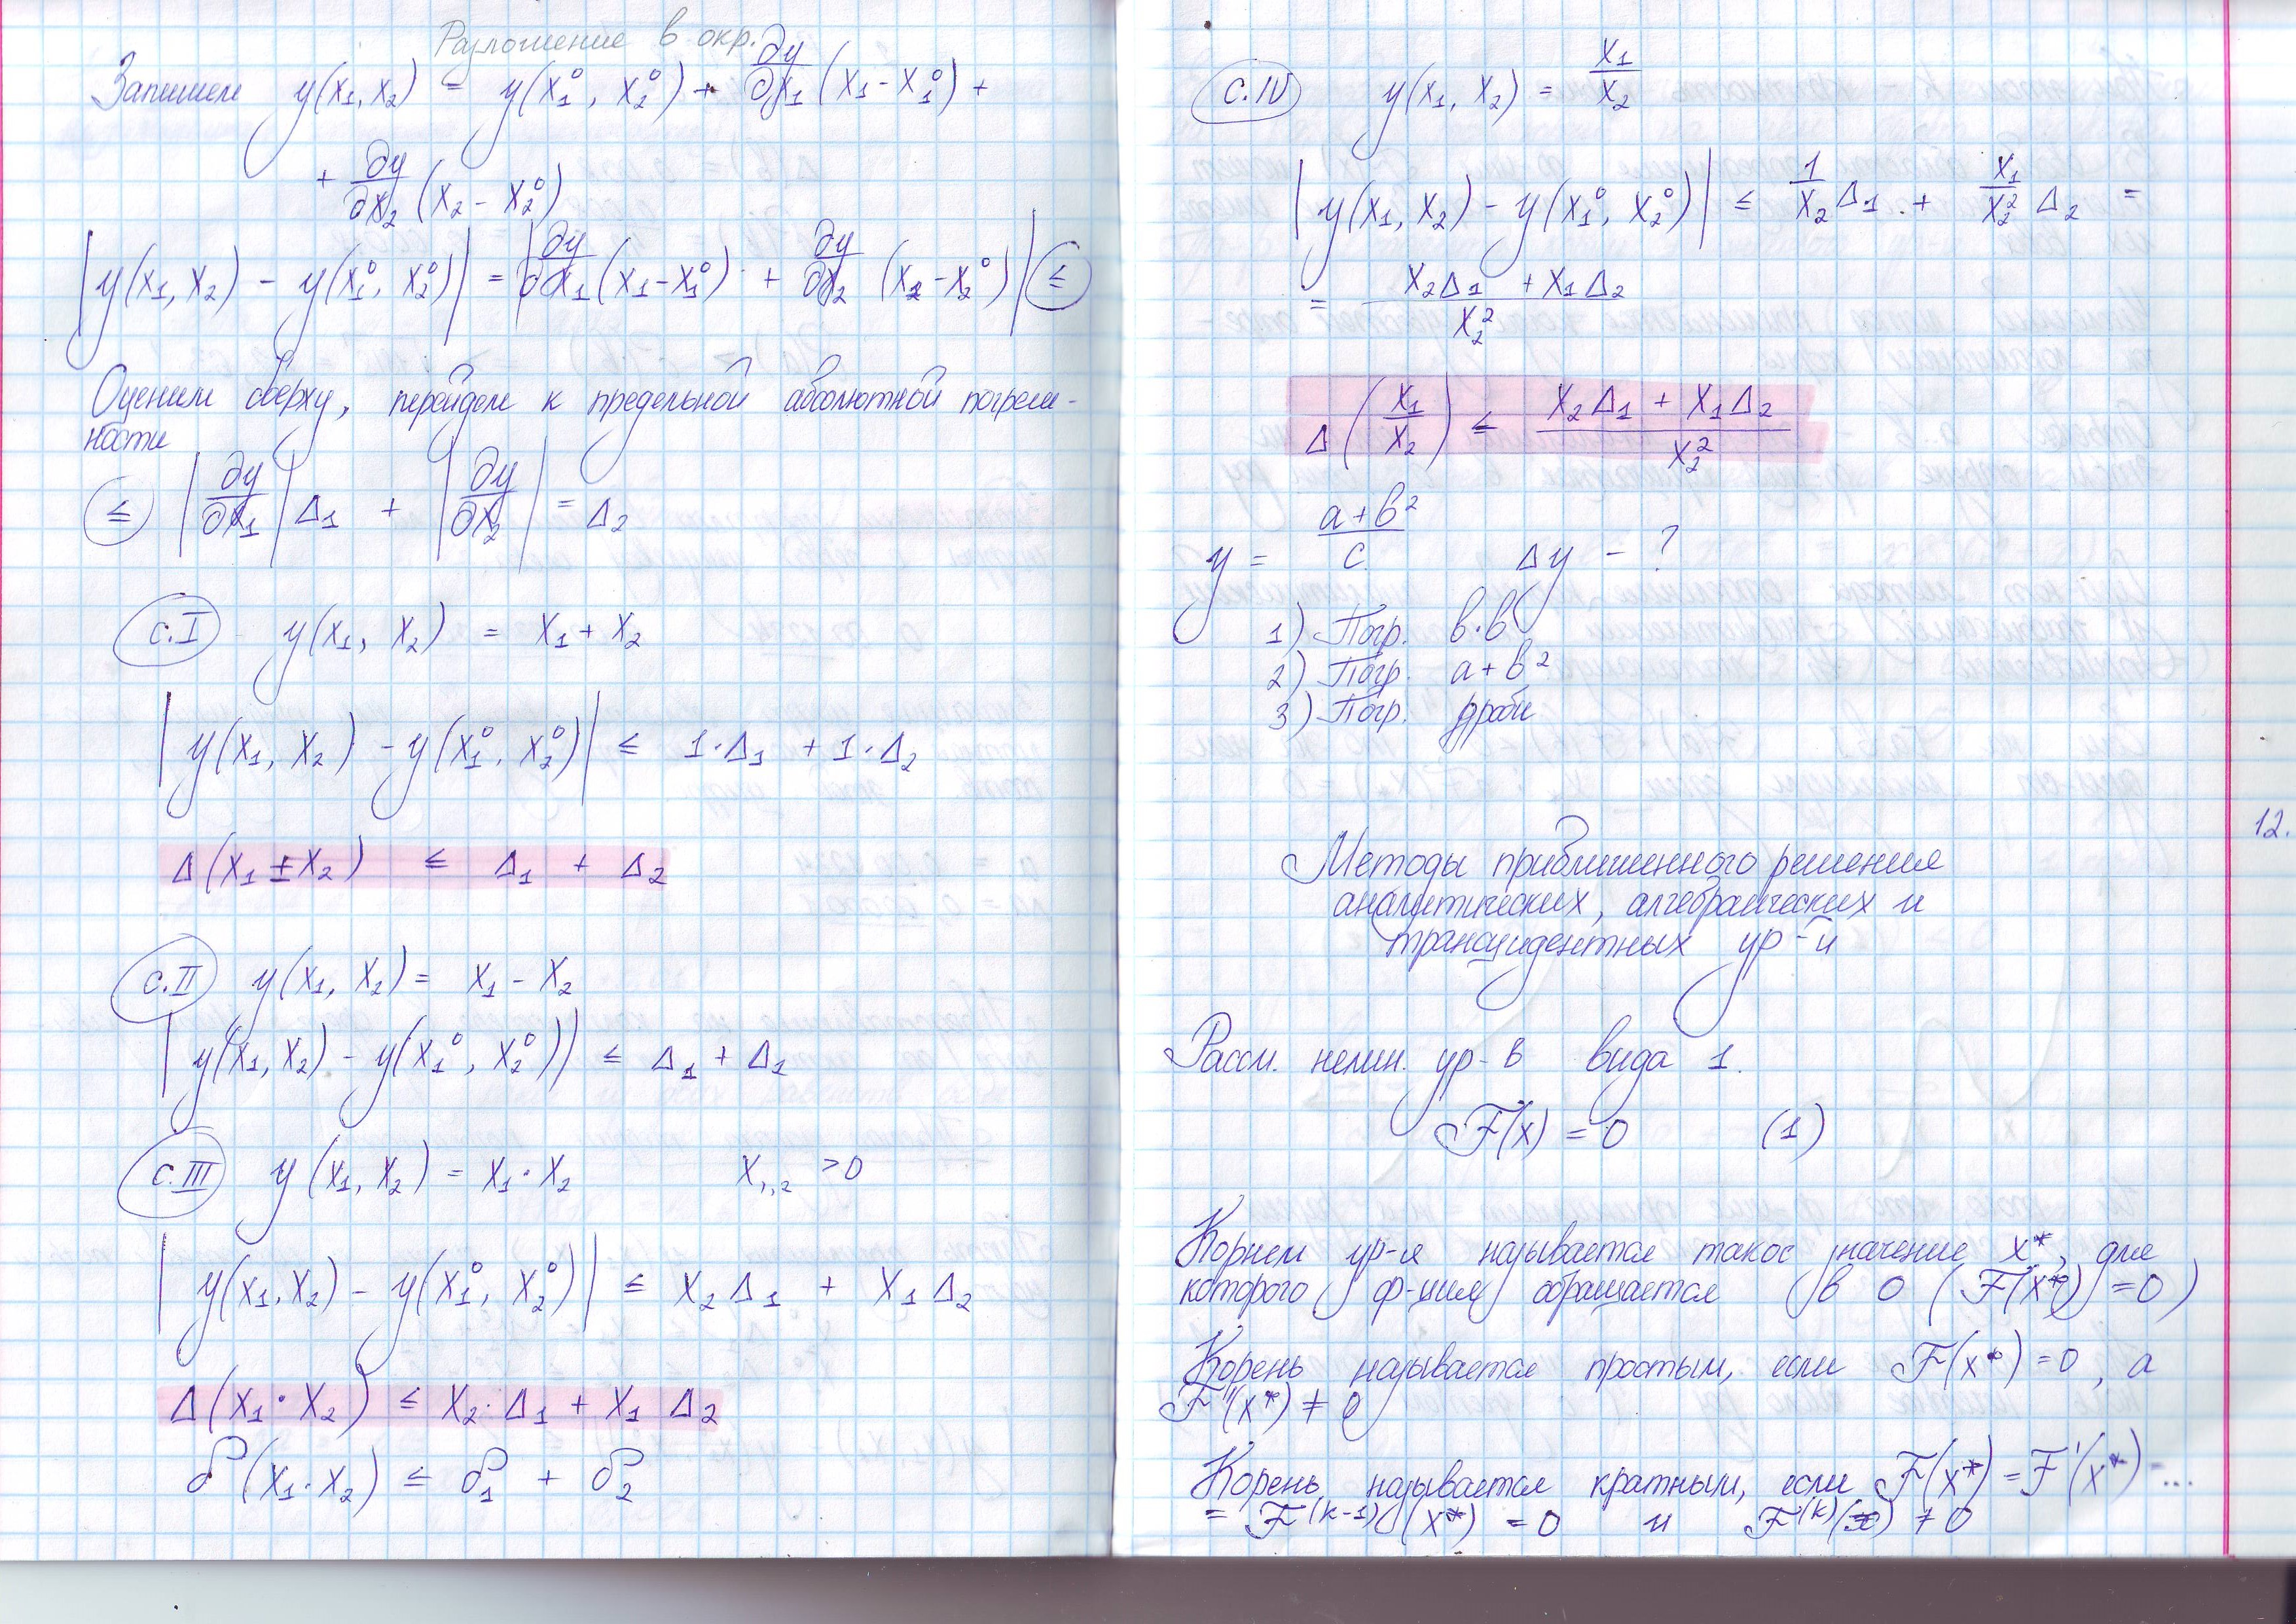 Разложение в окр.
Запишем y(x₁, x₂) = y(x₁⁰, x₂⁰) + ∂y/∂x₁ (x₁ - x₁⁰) +
+ ∂y/∂x₂ (x₂ - x₂⁰)
|y(x₁, x₂) - y(x₁⁰, x₂⁰)| = |∂y/∂x₁ (x₁ - x₁⁰) + ∂y/∂x₂ (x₂ - x₂⁰)| ≤
Оценим сверху, перейдем к предельной абсолютной погреш-
ности
≤ |∂y/∂x₁| Δ₁ + |∂y/∂x₂| = Δ₂
с.I y(x₁, x₂) = x₁ + x₂
|y(x₁, x₂) - y(x₁⁰, x₂⁰)| ≤ 1·Δ₁ + 1·Δ₂
Δ(x₁ ± x₂) ≤ Δ₁ + Δ₂
с.II y(x₁, x₂) = x₁ - x₂
|y(x₁, x₂) - y(x₁⁰, x₂⁰)| ≤ Δ₁ + Δ₁
с.III y(x₁, x₂) = x₁·x₂ x₁,₂ > 0
|y(x₁, x₂) - y(x₁⁰, x₂⁰)| ≤ x₂Δ₁ + x₁Δ₂
Δ(x₁·x₂) ≤ x₂·Δ₁ + x₁Δ₂
δ(x₁·x₂) ≤ δ₁ + δ₂
с.IV y(x₁, x₂) = x₁/x₂
|y(x₁, x₂) - y(x₁⁰, x₂⁰)| ≤ 1/x₂ Δ₁ + x₁/x₂² Δ₂ =
= (x₂Δ₁ + x₁Δ₂)/x₂²
Δ(x₁/x₂) ≤ (x₂Δ₁ + x₁Δ₂)/x₂²
y = (a + b²)/c Δy - ?
1) Погр. b·b
2) Погр. a + b²
3) Погр. дроби
12.
Методы приближенного решения
аналитических, алгебраических и
трансцидентных ур-й
Рассм. нелин. ур-в вида 1.
F(x) = 0 (1)
Корнем ур-я называется такое значение x*, для
которого ф-ция обращается в 0 (F(x*) = 0)
Корень называется простым, если F(x*) = 0, а
F'(x*) ≠ 0
Корень называется кратным, если F(x*) = F'(x*) = ...
= F⁽ᵏ⁻¹⁾(x*) = 0 и F⁽ᵏ⁾(x) ≠ 0